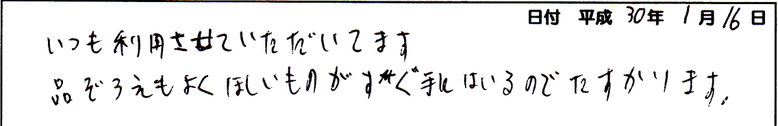 日付 平成 30年 1月 16日
いつも利用させていただいてます
品ぞろえもよくほしいものがすぐ手にはいるのでたすかります。